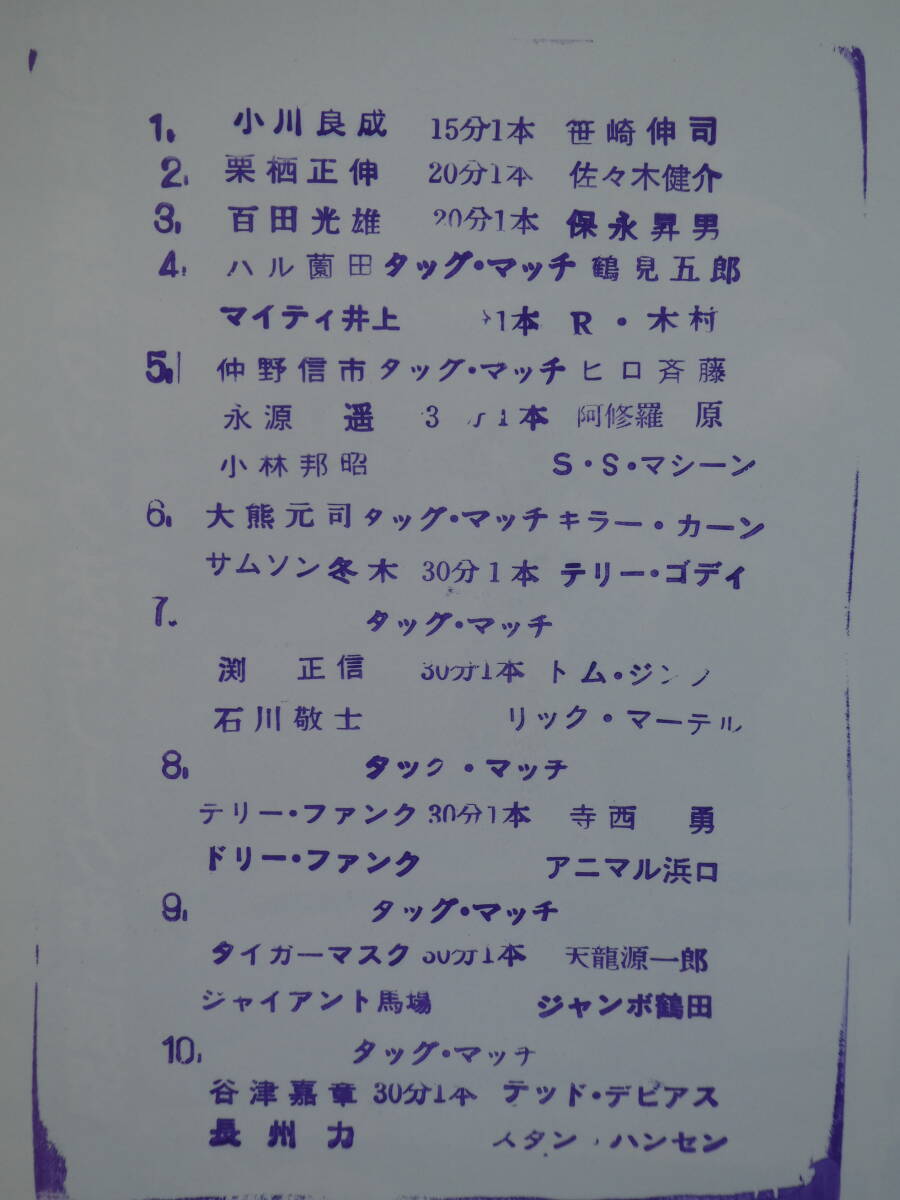 1. 小川良成 15分1本 笹崎伸司
2. 栗栖正伸 20分1本 佐々木健介
3. 百田光雄 20分1本 保永昇男
4. ハル薗田 タッグ・マッチ 鶴見五郎
マイティ井上 1本 R・木村
5. 仲野信市 タッグ・マッチ ヒロ斉藤
永源 遥 3 1本 阿修羅 原
小林邦昭 S・S・マシーン
6. 大熊元司 タッグ・マッチ キラー・カーン
サムソン冬木 30分1本 テリー・ゴディ
7. タッグ・マッチ
渕 正信 30分1本 トム・ジンク
石川敬士 リック・マーテル
8. タック・マッチ
テリー・ファンク 30分1本 寺西 勇
ドリー・ファンク アニマル浜口
9. タッグ・マッチ
タイガーマスク 30分1本 天龍源一郎
ジャイアント馬場 ジャンボ鶴田
10. タッグ・マッチ
谷津嘉章 30分1本 テッド・デビアス
長州力 スタン・ハンセン